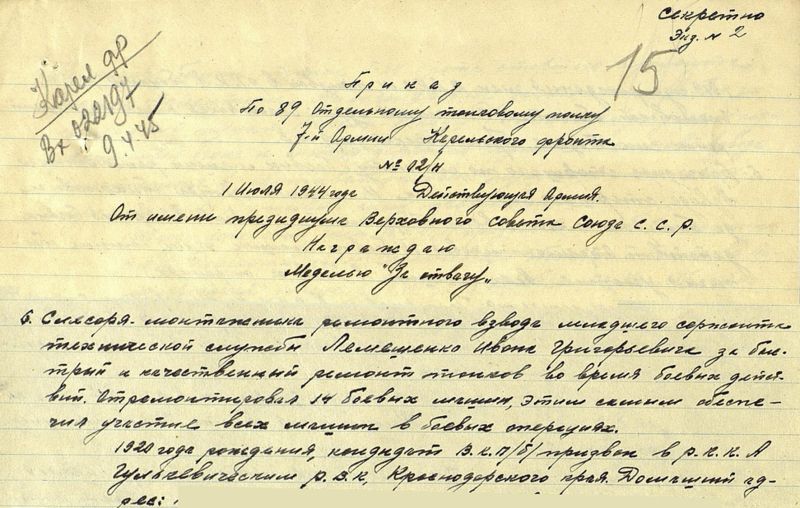 Секретно
Экз. № 2
15
Карел фр
Вх 022197
9.4.45
Приказ
По 89 Отдельному танковому полку
7-й Армии Карельского фронта
№ 02/н
1 Июля 1944 года Действующая Армия.
От имени президиума Верховного совета Союза С.С.Р.
Награждаю
Медалью "За отвагу„
6. Слесаря-монтажника ремонтного взвода младшего сержанта
технической службы Лемешенко Ивана Григорьевича за быс-
трый и качественный ремонт танков во время боевых дейст-
вий. Отремонтировал 14 боевых машин, этим самым обеспе-
чил участие всех машин в боевых операциях.
1920 года рождения, кандидат В.К.П/б/ призван в Р.К.К.А
Гулькевическим Р.В.К, Краснодарского края. Домашний ад-
рес: